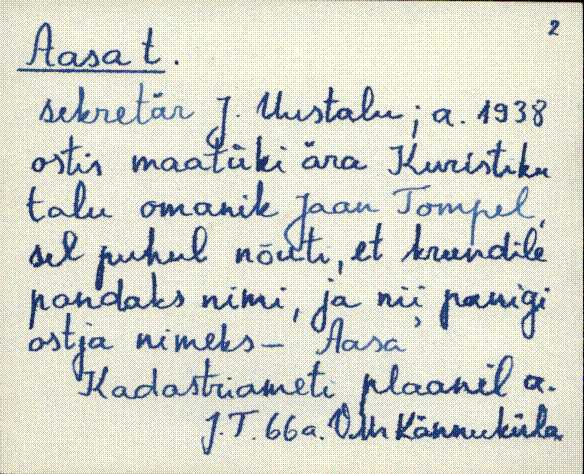 2
Aasa t.
sekretär J. Uustalu; a. 1938
ostis maatüki ära Kuristiku
talu omanik Jaan Tompel,
sel puhul nõuti, et krundile
pandaks nimi, ja nii panigi
ostja nimeks – Aasa
Kadastriameti plaanil a.
J.T. 66a. V.M. Kännuküla